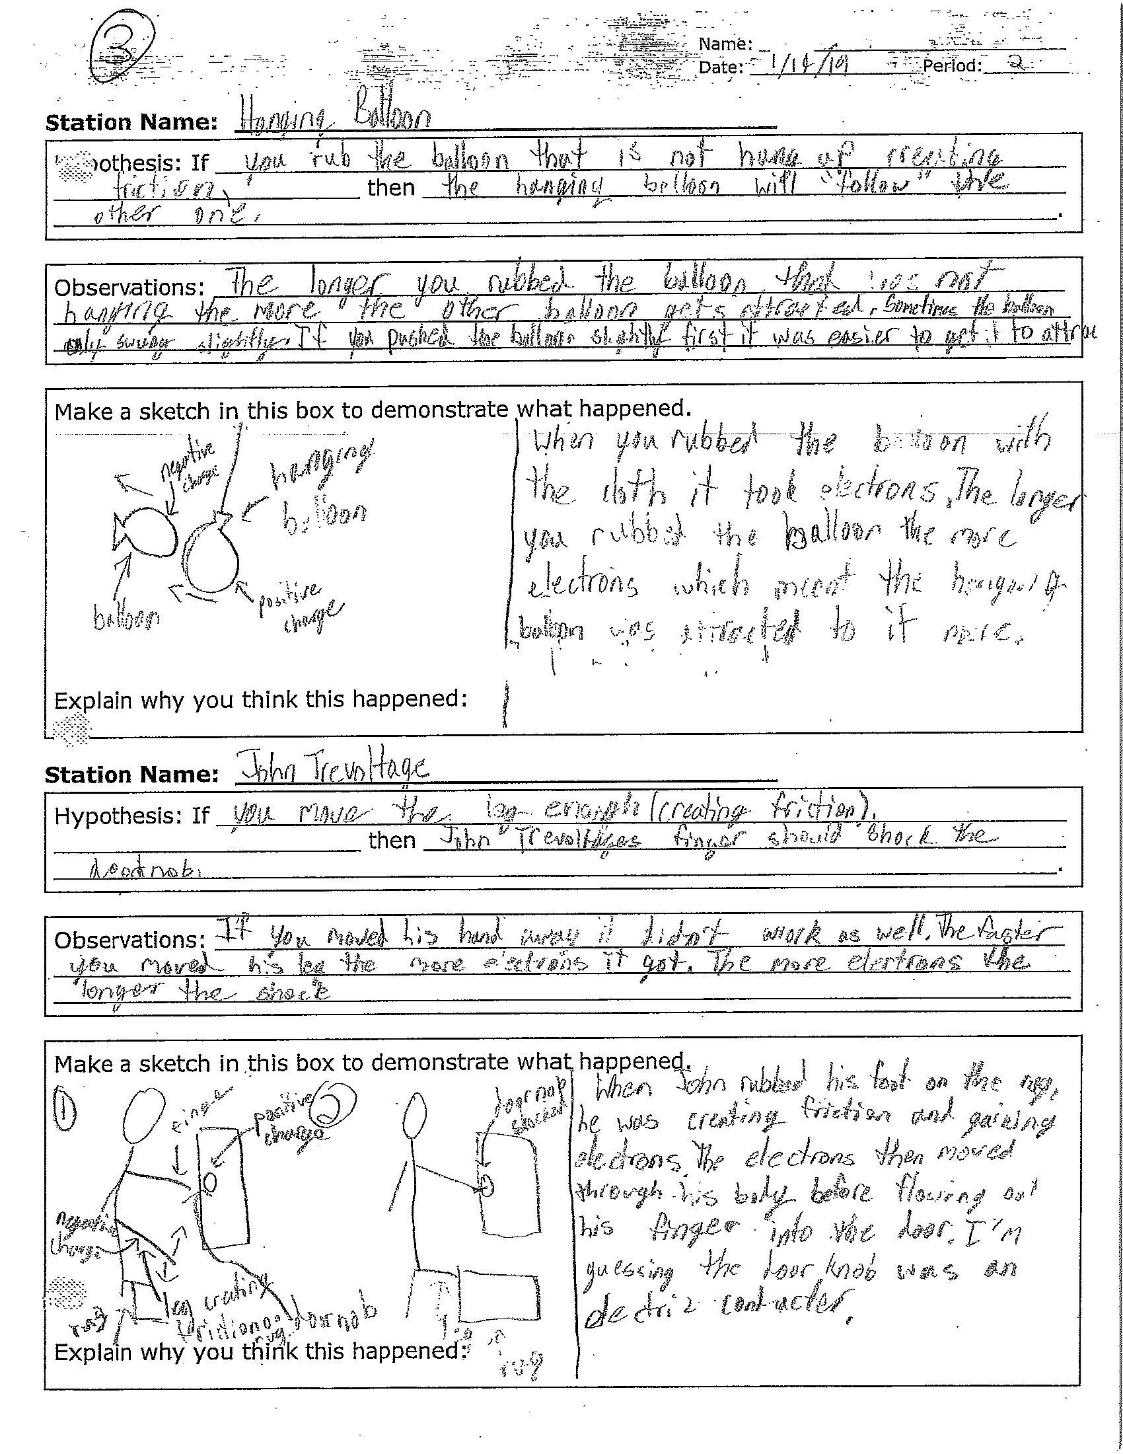 3
Name:
Date: 1/14/19 Period: 2
Station Name: Hanging Balloon
pothesis: If you rub the balloon that is not hung up creating
friction, then the hanging balloon will "follow" the
other one.
Observations: The longer you rubbed the balloon that was not
hanging the more the other balloon gets attracted. Sometimes the balloon
only swung slightly. If you pushed the balloon slightly first it was easier to get it to attrac
Make a sketch in this box to demonstrate what happened.
negative
charge
hanging
balloon
balloon
positive
charge
When you rubbed the balloon with
the cloth it took electrons. The longer
you rubbed the balloon the more
electrons which meant the hanging
balloon was attracted to it more.
Explain why you think this happened:
Station Name: John Trevoltage
Hypothesis: If you move the leg enough (creating friction).
then John Trevoltages finger should shock the
doornob.
Observations: If you moved his hand away it didn't work as well. The faster
you moved his leg the more electrons it got. The more elertrons the
longer the shock
Make a sketch in this box to demonstrate what happened.
1
finger
positive
charge
2
negative
charge
rug
leg creating
rug
doornob
doornob
shocked
leg
rug
When John rubbed his foot on the rug,
he was creating friction and gaining
electrons. The electrons then moved
through his body before flowing out
his finger into the door. I'm
guessing the door knob was an
contacter.
Explain why you think this happened: